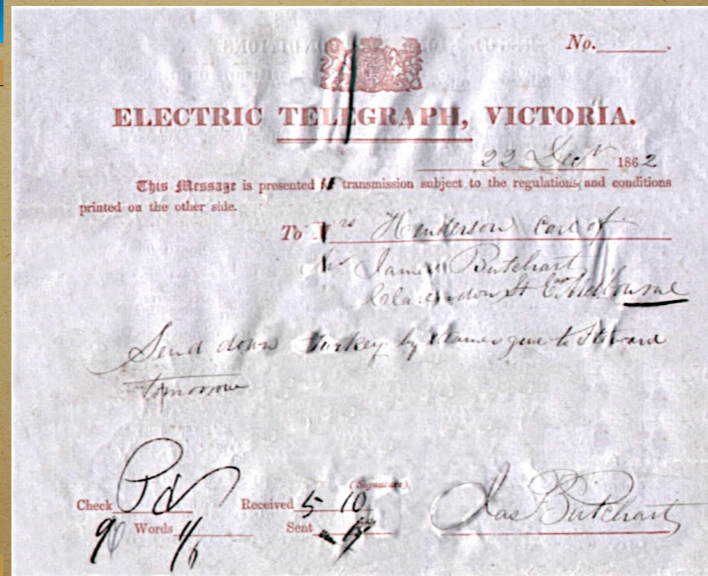 No.
ELECTRIC TELEGRAPH, VICTORIA.
22 Decr 1862
This Message is presented transmission subject to the regulations and conditions
printed on the other side.
To Mrs Henderson Care of
Mr James Butchart
Clarendon St E. Melbourne
Send down turkey by steamer give to Steward
tomorrow
(Signature),
Check Pd Received 5 10
Words 1/6 Sent
Jas Butchart